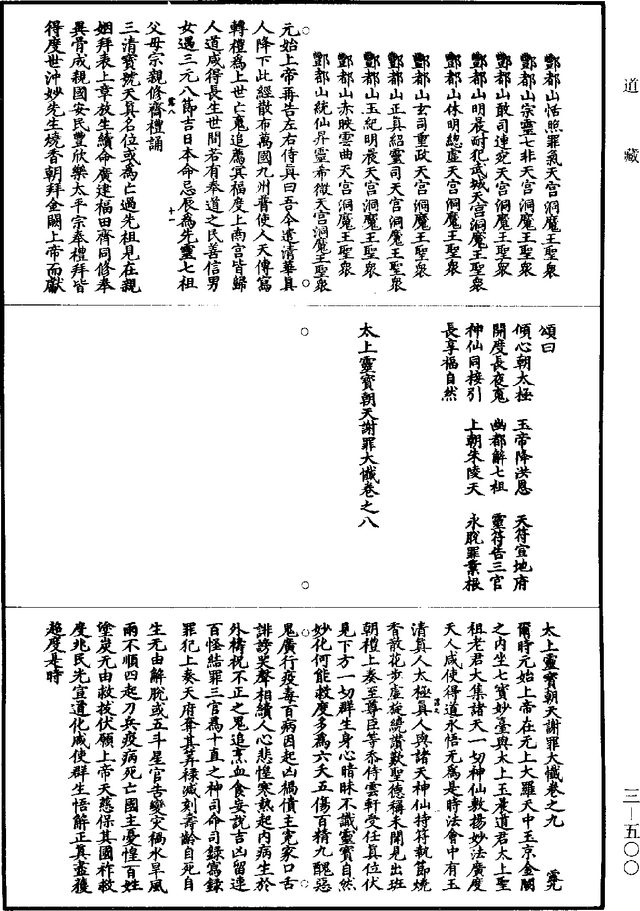 道藏
酆都山恬照罪氣天宮洞魔王聖衆
酆都山宗靈七非天宮洞魔王聖衆
酆都山敢司連宛天宮洞魔王聖衆
酆都山明晨耐犯武城天宮洞魔王聖衆
酆都山休明總虛天宮洞魔王聖衆
酆都山玄司重政天宮洞魔王聖衆
酆都山正真紹靈司天宮洞魔王聖衆
酆都山玉紀明晨天宮洞魔王聖衆
酆都山赤映雲曲天宮洞魔王聖衆
酆都山統仙昇靈希微天宮洞魔王聖衆
元始上帝再告左右侍真曰吾今遣清華真
人降下此經散布萬國九州普使人天傳寫
轉禮為上世亡魂追薦冥福度上南宮皆歸
人道咸得長生世間若有奉道之民善信男
女遇三元八節吉日本命忌辰為先靈七祖
父母宗親修齋禮誦
三清寶號天真名位或為亡過先祖見在親
姻拜表上章放生續命廣建福田齊同修奉
異骨成親國安民豐欣樂太平宗奉禮拜皆
得度世沖妙先生燒香朝拜金闕上帝而獻
頌曰
傾心朝太極 玉帝降洪恩 天符宣地府
開度長夜魂 幽都解七祖 靈符告三官
神仙同接引 上朝朱陵天 永脫罪業根
長享福自然
太上靈寶朝天謝罪大懺卷之八
太上靈寶朝天謝罪大懺卷之九
爾時元始上帝在元上大羅天中玉京金闕
之內坐七寶妙臺與太上玉晨道君太上聖
祖老君大集諸天一切神仙敷揚妙法廣度
天人咸使得道永悟无為是時法會中有玉
清真人太極真人與諸天神仙持符執節燒
香散花步虛旋繞讚歎聖德稱未聞見出班
朝禮上奏至尊臣等忝侍雲軒受任真位伏
見下方一切群生身心暗昧不識靈寶自然
妙化何能救度多為六天五傷百精九醜惡
鬼廣行疫毒百病因起凶禍債主冤家口舌
誹謗哭聲相續人心悲惶寒熱起內病生於
外禱祝不正之鬼追熏血食妄說吉凶留連
百怪結罪三官為十直之神司命司錄寫錄
罪犯上奏天府奪其筭祿減刻壽齡自死自
生无由解脫或五斗星官告變灾禍水旱風
雨不順四起刀兵疫病死亡國主憂惶百姓
塗炭无由救拔伏願上帝天慈保其國祚救
度兆民先宣道化咸使群生悟解正真盡獲
超度是時
三—五〇〇